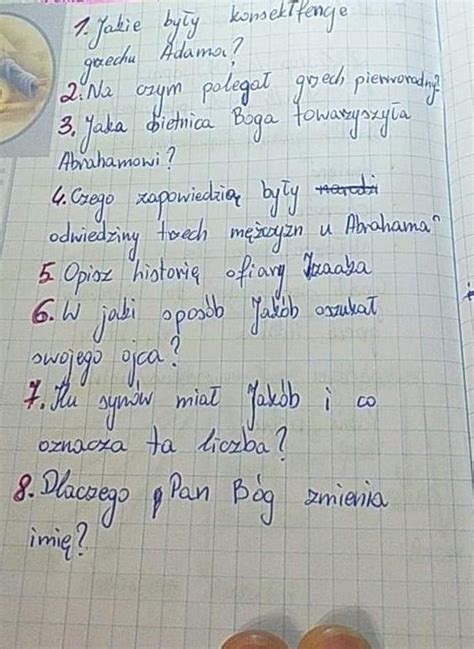 1. Jakie były konsekfencje
grzechu Adama?
2. Na czym polegał grzech pierworodny
3. Jaka obietnica Boga towarzyszyła
Abrahamowi?
4. Czego zapowiedzią były narodzi
odwiedziny trzech mężczyzn u Abrahama
5. Opisz historię ofiary Izaaka
6. W jaki sposób Jakób oszukał
swojego ojca?
7. Ilu synów miał Jakób i co
oznacza ta liczba?
8. Dlaczego Pan Bóg zmienia
imię?